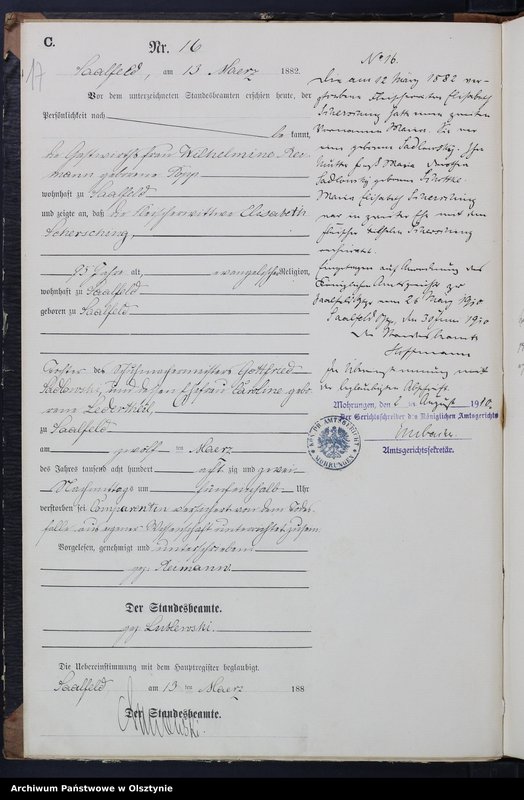 C.
Nr. 16
17
Saalfeld, am 13 Maerz 1882.
Vor dem unterzeichneten Standesbeamten erschien heute, der
Persönlichkeit nach
be kannt,
die Gastwirthsfrau Wilhelmine Rei-
mann geborene
wohnhaft zu Saalfeld
und zeigte an, daß die Fleischerwittwe Elisabeth
Schersching,
93 Jahre alt, evangelischer Religion,
wohnhaft zu Saalfeld
geboren zu Saalfeld
Tochter des Schuhmachermeisters Gottfried
Sadlowski, und dessen Ehefrau Caroline gebo-
rene
zu Saalfeld
am zwölf ten Maerz
des Jahres tausend acht hundert acht zig und zwei
Nachmittags um fünf einhalb Uhr
verstorben sei Comparentin versichert von dem Todes-
falle aus eigener Wissenschaft unterrichtet zu sein
Vorgelesen, genehmigt und unterschrieben
gez. Reimann.
Der Standesbeamte.
gez.
Die Uebereinstimmung mit dem Hauptregister beglaubigt.
Saalfeld am 13 ten Maerz 188
Der Standesbeamte.
No 16.
Die am 12 März 1882 ver-
storbene Fleischerwittwe Elisabeth
Scherschning hatte zum zweiten
Vornamen Maria. Sie war
eine geborene Sadlowsky. Ihre
Mutter hieß Maria Dorothea
Sadlowsky geborene
Maria Elisabeth Scherschning
war in zweiter Ehe mit dem
Fleischer Scherschning
verheiratet.
Eingetragen auf Anordnung des
Königlichen Amtsgerichts zu
Saalfeld Opr. vom 26 März 1910
Saalfeld Opr., den 30 Juni 1910
Der Standesbeamte
Hoffmann
Die Übereinstimmung mit
der beglaubigten Abschrift.
Mohrungen, den 6. August 1910.
Der Gerichtsschreiber des Königlichen Amtsgerichts
Amtsgerichtssekretär.
KÖN. PR. AMTSGERICHT
MOHRUNGEN
Archiwum Państwowe w Olsztynie